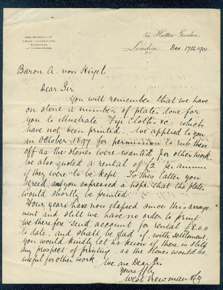 54, Hatton Garden,
London, Nov. 17th 1901
Baron A. von Hügel
Dear Sir
You will remember that we have
on stone a number of plates done for
you to illustrate "Fiji Cloth" &c: which
have not been printed. We applied to you
in October 1897 for permission to rub them
off as the stones were wanted for other work
We also quoted a rental of per annum
if they were to be kept. To this latter you
agreed and you expressed a hope that the plates
would shortly be printed.
Four years has now elapsed since this arrange-
ment and still we have no order to print
we therefore send account for rental £8.0.0
to date, and shall be glad if, with settlement,
you would kindly let us know if there is still
any prospect of printing as the stones would be
useful for other work.
We are Dear Sir
Yours ffy
West Newman & Co